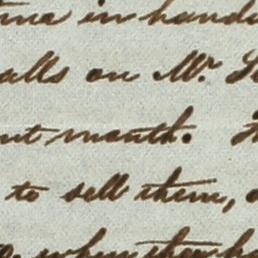 in hand
calls on Mr.
month.
to sell them,
when they